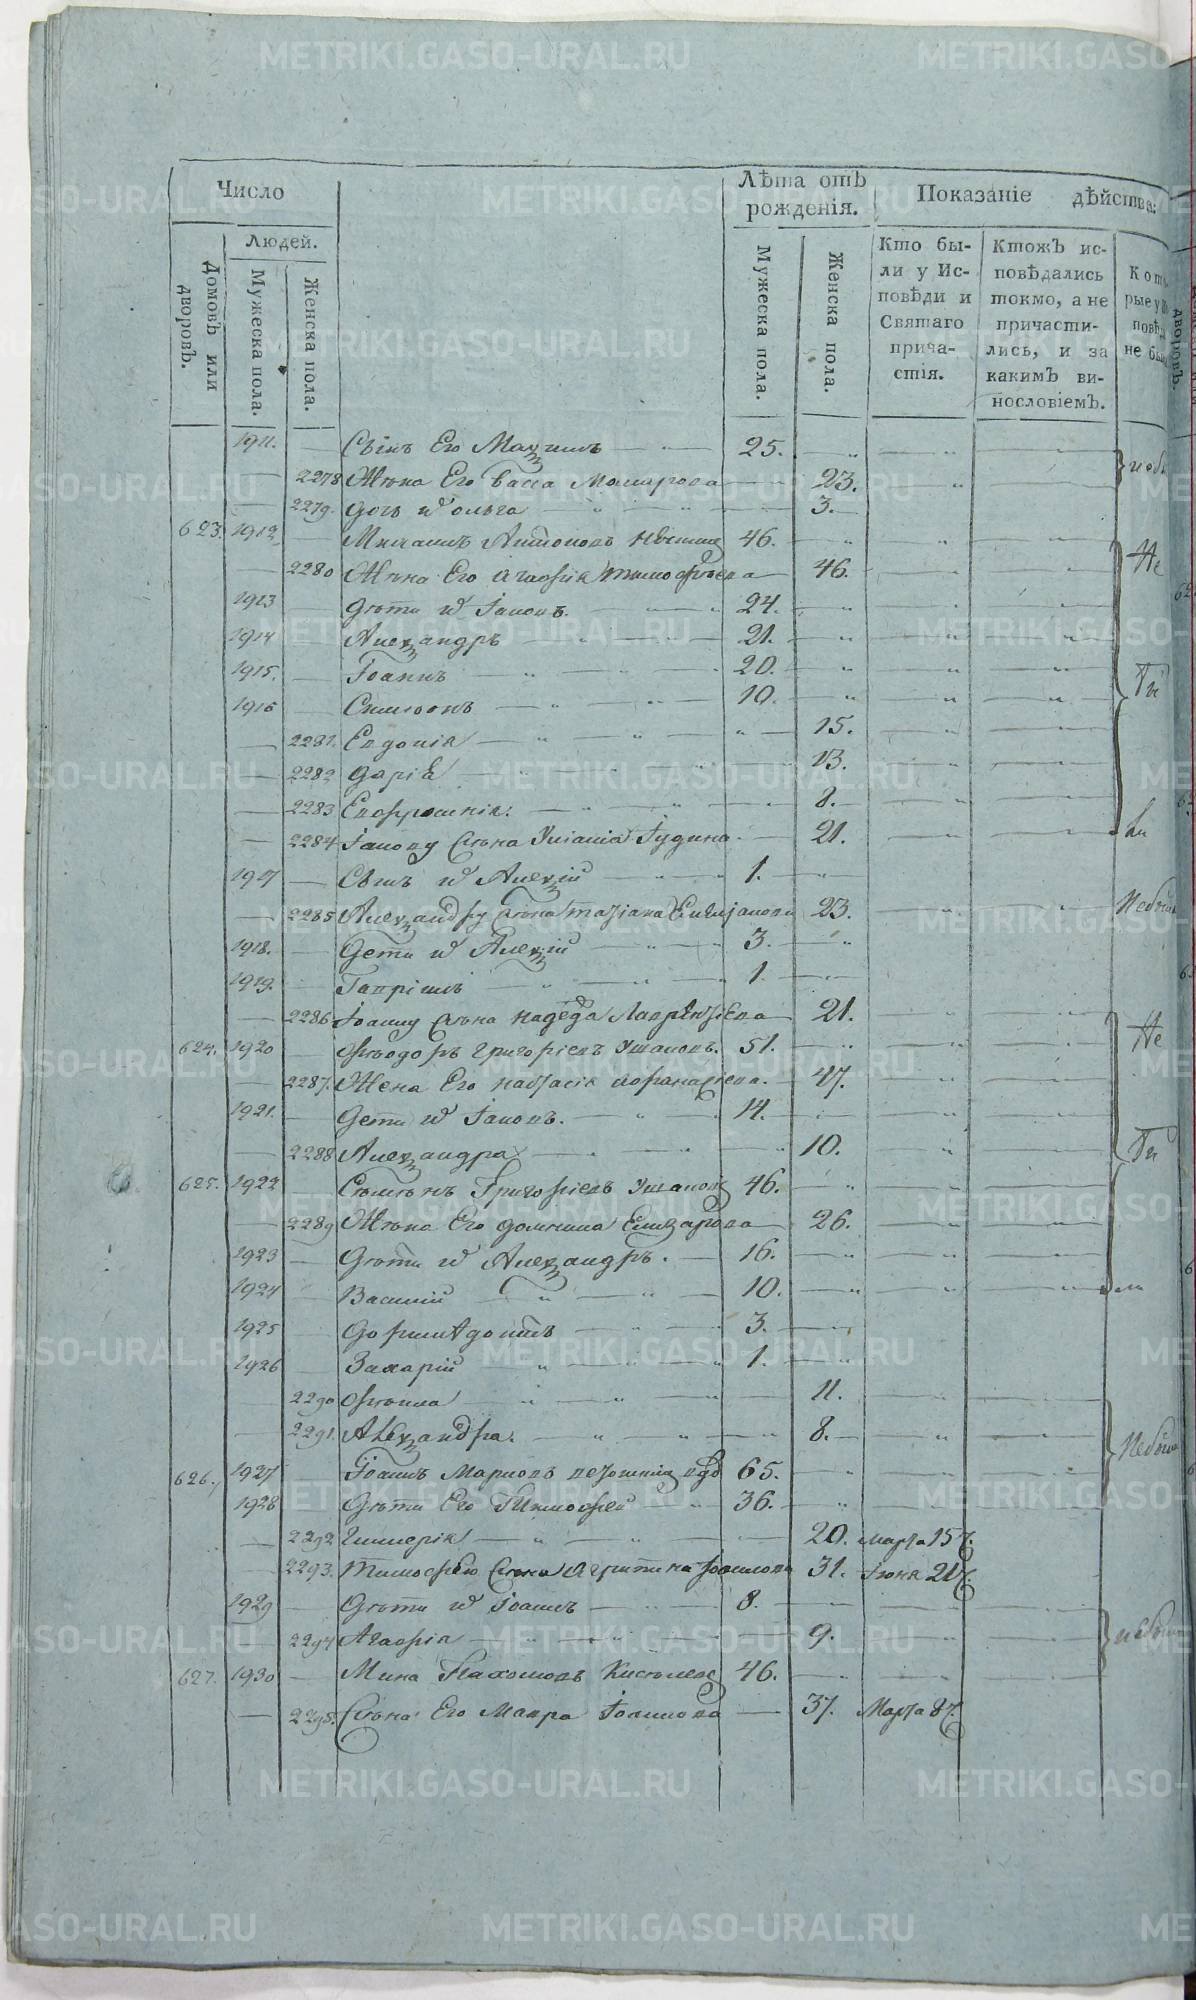 Число
Лѣта отъ рожденія.
Показаніе дѣйства:
Домовъ или дворовъ.
Людей.
Мужеска пола.
Женска пола.
Мужеска пола.
Женска пола.
Кто были у Исповѣди и Святаго причастія.
Ктожъ исповѣдались токмо, а не причастились, и за какимъ винословіемъ.
1911. Сынъ Его Маѯимъ 25.
2278 Жѣна Его Васса 23.
2279. дочь Ѡльга 3.
623. 1912. Антоновъ 46.
2280 Жѣна Его Агафія Тимофѣева 46. Не
1913 дѣти Ѡ Іаковъ. 24.
1914 Алеѯандръ 21.
1915. Іоаннъ 20.
1916 Симеонъ 10.
2281. Евдокія 15.
2282 дарія 13.
2283 Евфросинія. 8.
2284 Іакову жѣна Іудина 21. ли
1917 Сынъ Ѡ Алеѯій 1.
2285 Алеѯандру жѣна Татіана Емеліанова 23.
1918. Дети Ѡ Алеѯій 3.
1919. Гавріилъ 1.
2286 Іоанну жѣна Надежда Лаврентіева 21.
624. 1920 Ѳеодоръ Григоріевъ Ушаковъ. 51. Не
2287. Жена Его Настасія Афанасіева. 47.
1921. Дети Ѡ Іаковъ. 14.
2288 Алеѯандра 10.
625. 1922 Сѣмѣнъ Григоріевъ Ушаковъ 46.
2289 Жѣна Его домнина Елизарова 26.
1923 Дѣти Ѡ Алеѯандръ. 16.
1924 Василій 10. ли
1925 3.
1926 Захарій 1.
2290 Ѳекла 11.
2291. Алеѯандра. 8.
626. 1927 Іоаннъ Марковъ 65.
1928 Дѣти Его Тимофей 36.
2292 Гликерія 20. Марта 15
2293. Тимофею жѣна Агрипина 31. Іюня 21
1929 Дѣти Ѡ Іоаннъ 8.
2294 Агафія 9.
627. 1930 Мина Пахомовъ Киселевъ 46.
2295. жѣна Его Мавра Іоакимова 37. Марта 8
METRIKI.GASO-URAL.RU